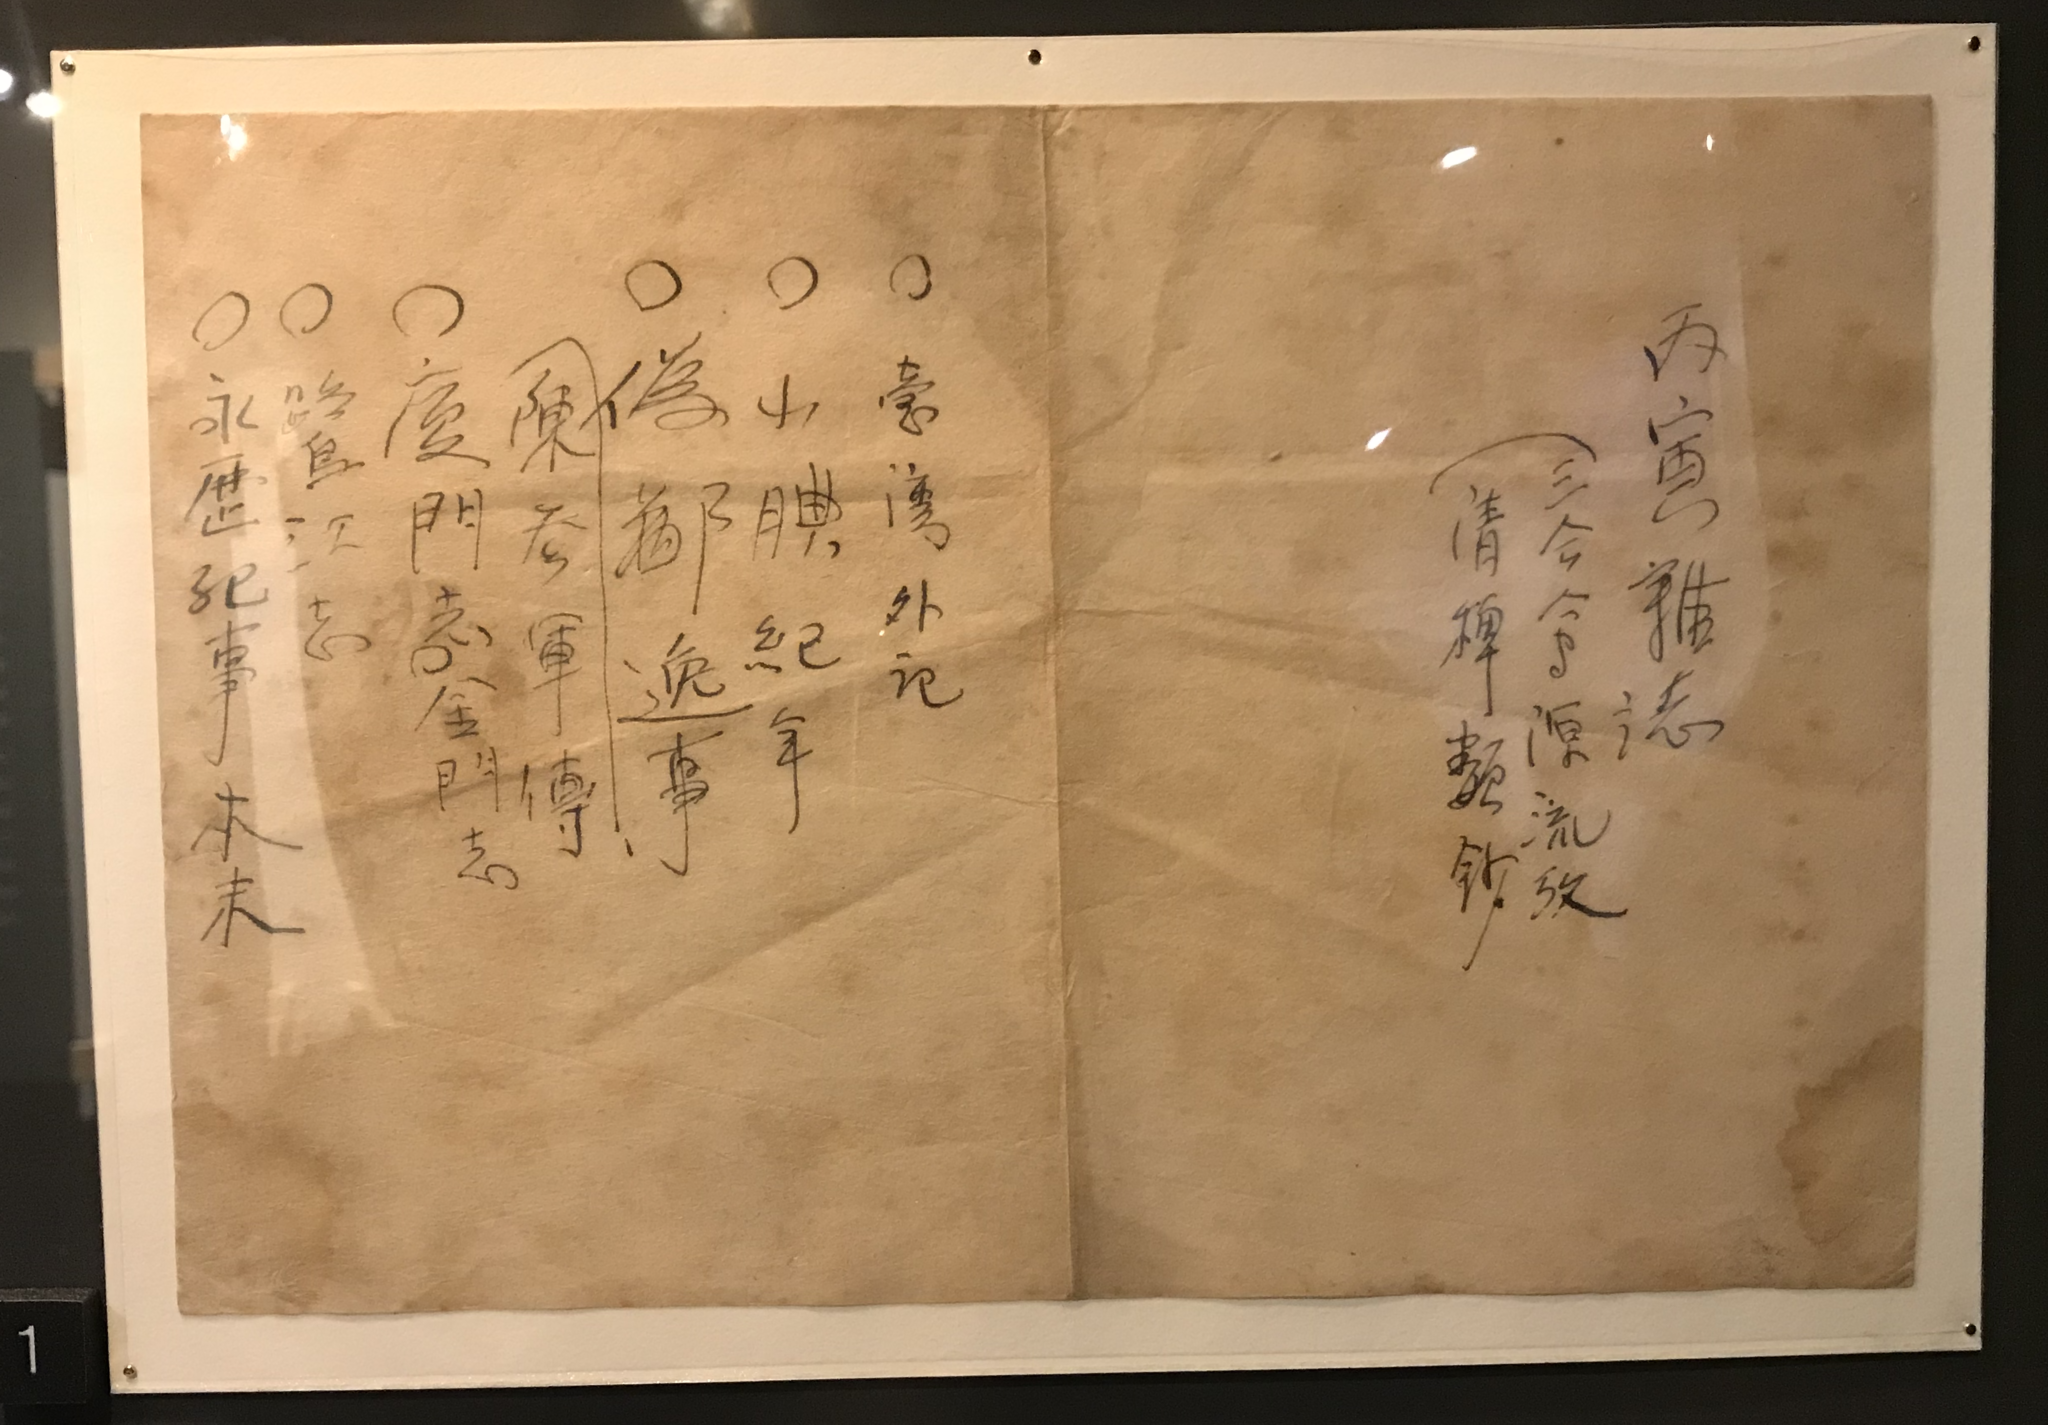 丙寅雜誌
三合會源流攷
清稗類鈔
○臺灣外記
○小腆紀年
○偽鄭逸事
陳參軍傳
○廈門志○金門志
○鷺江志
○永歷紀事本末
1